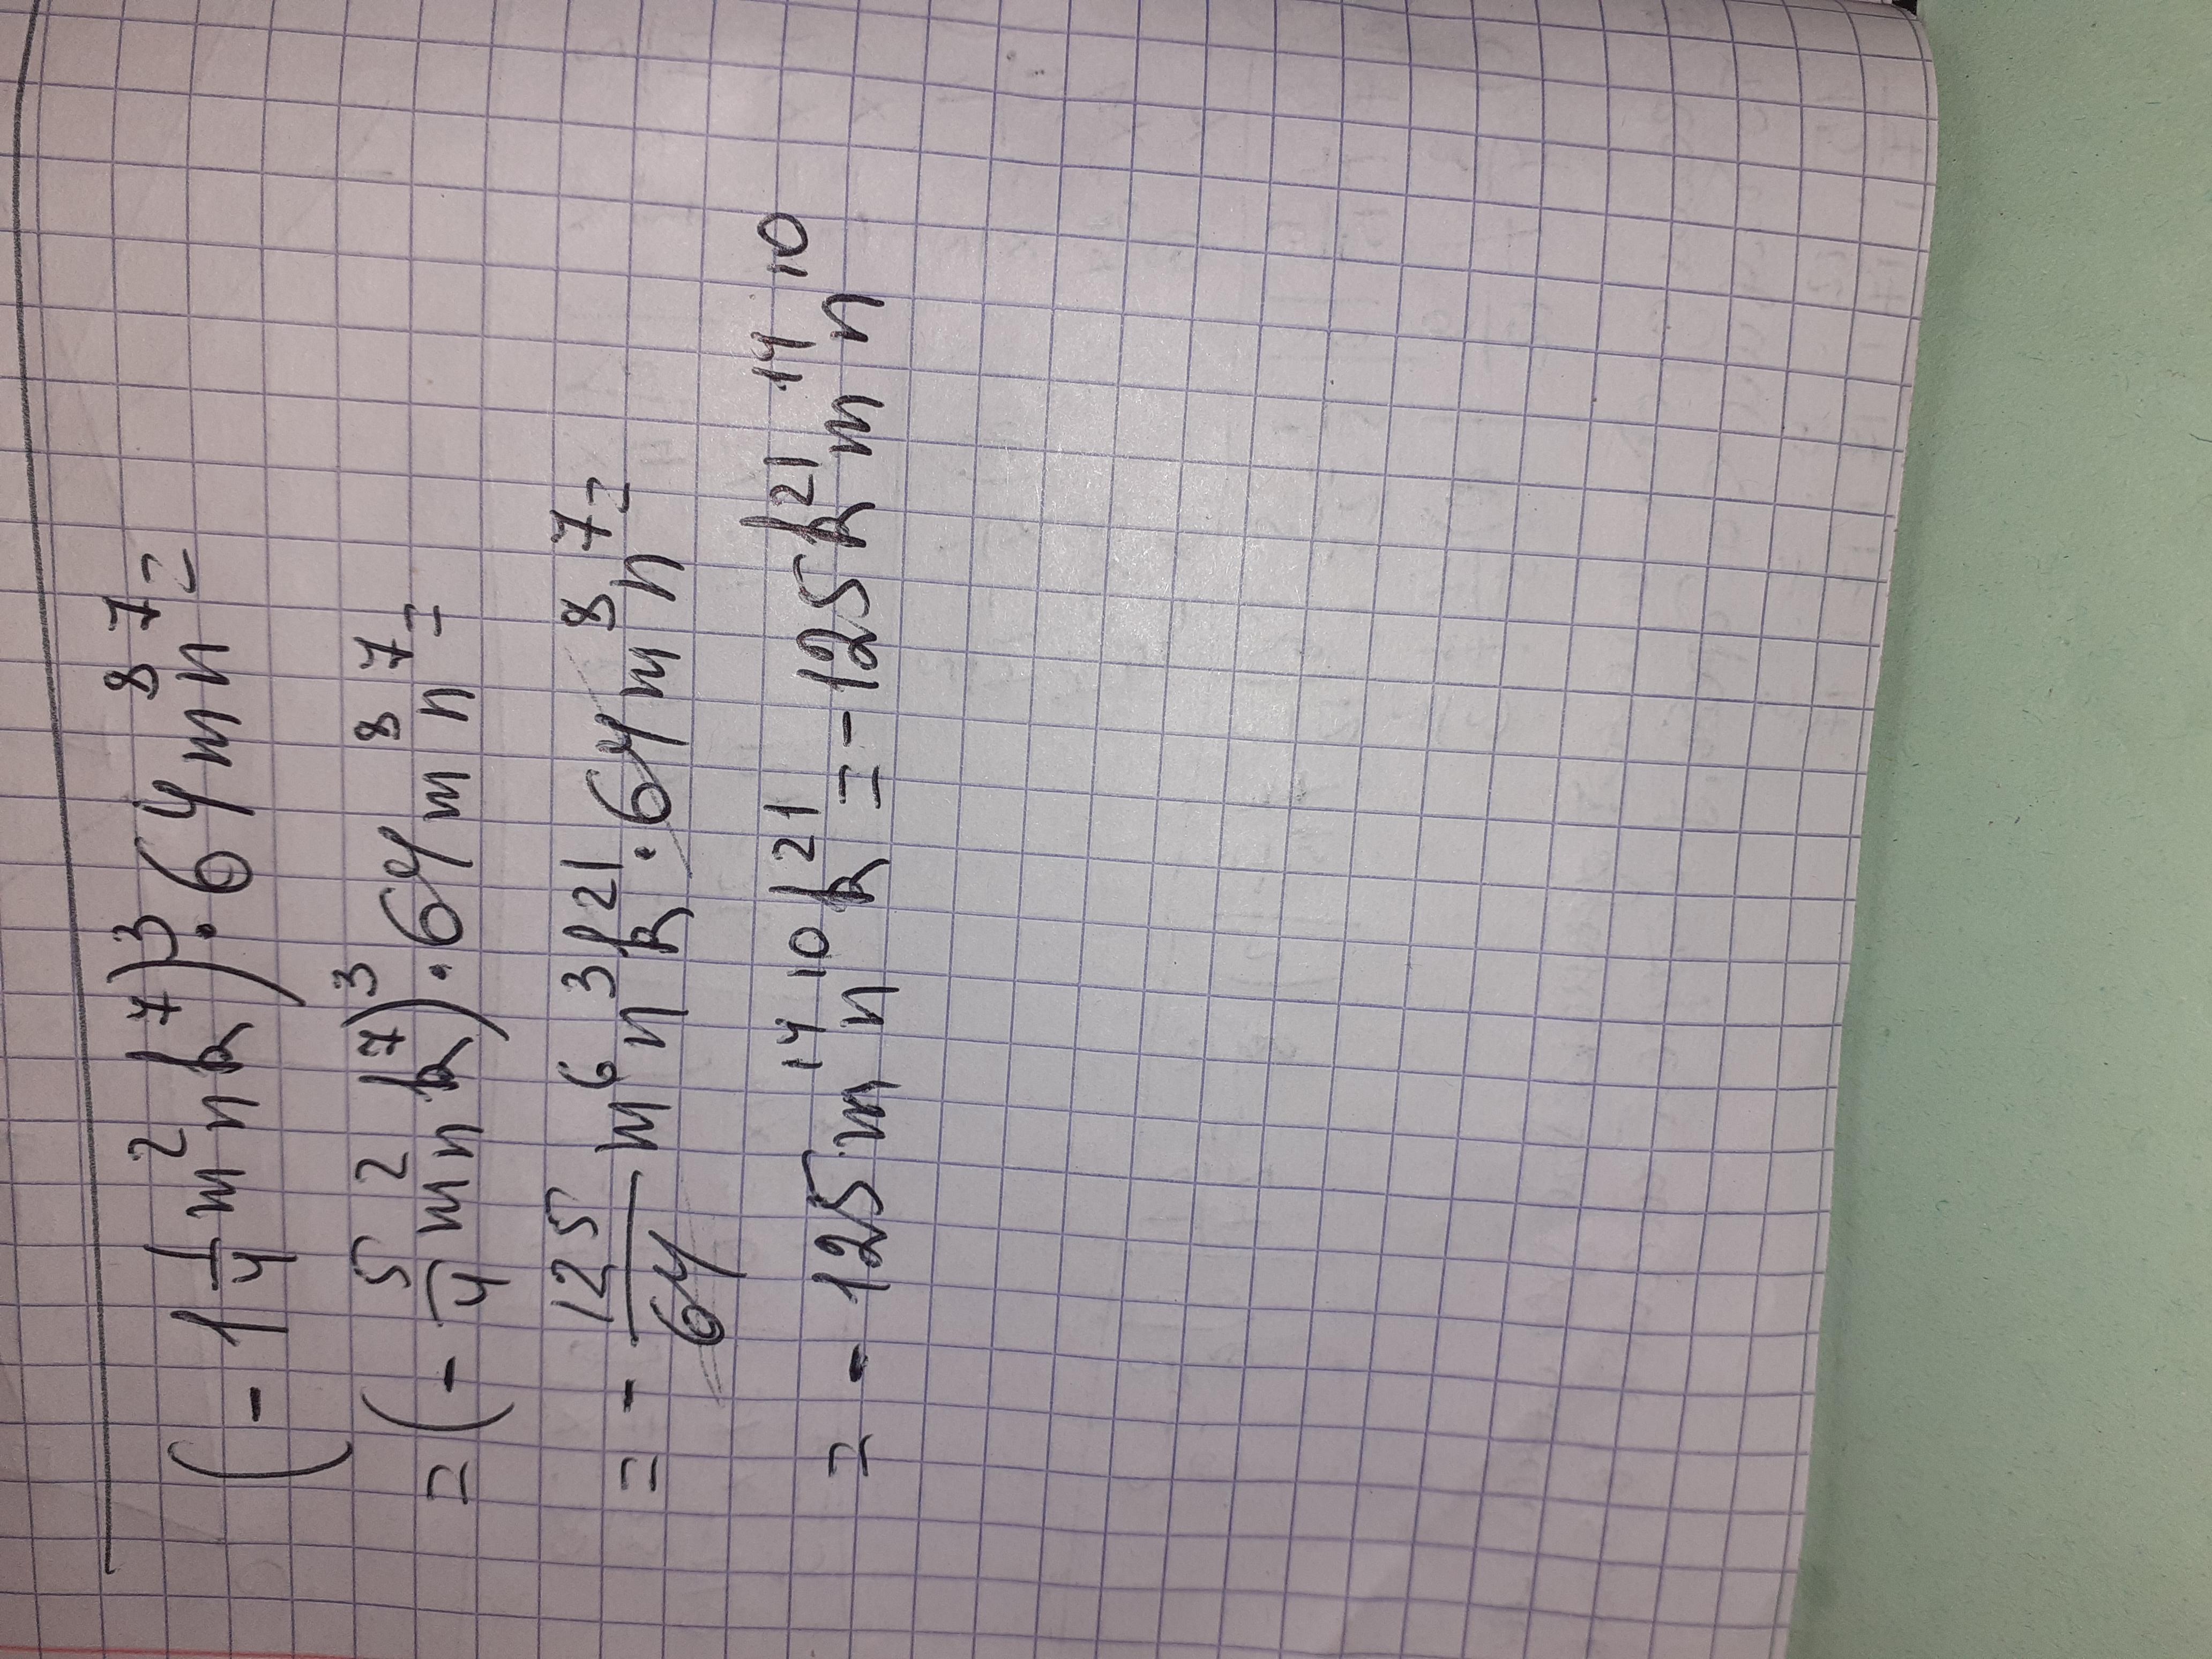 (-1 1/4 m²nk⁷)³·64m⁸n⁷=
=(-5/4 m²nk⁷)³·64m⁸n⁷=
=-125/64 m⁶n³k²¹·64m⁸n⁷=
=-125m¹⁴n¹⁰k²¹=-125k²¹m¹⁴n¹⁰